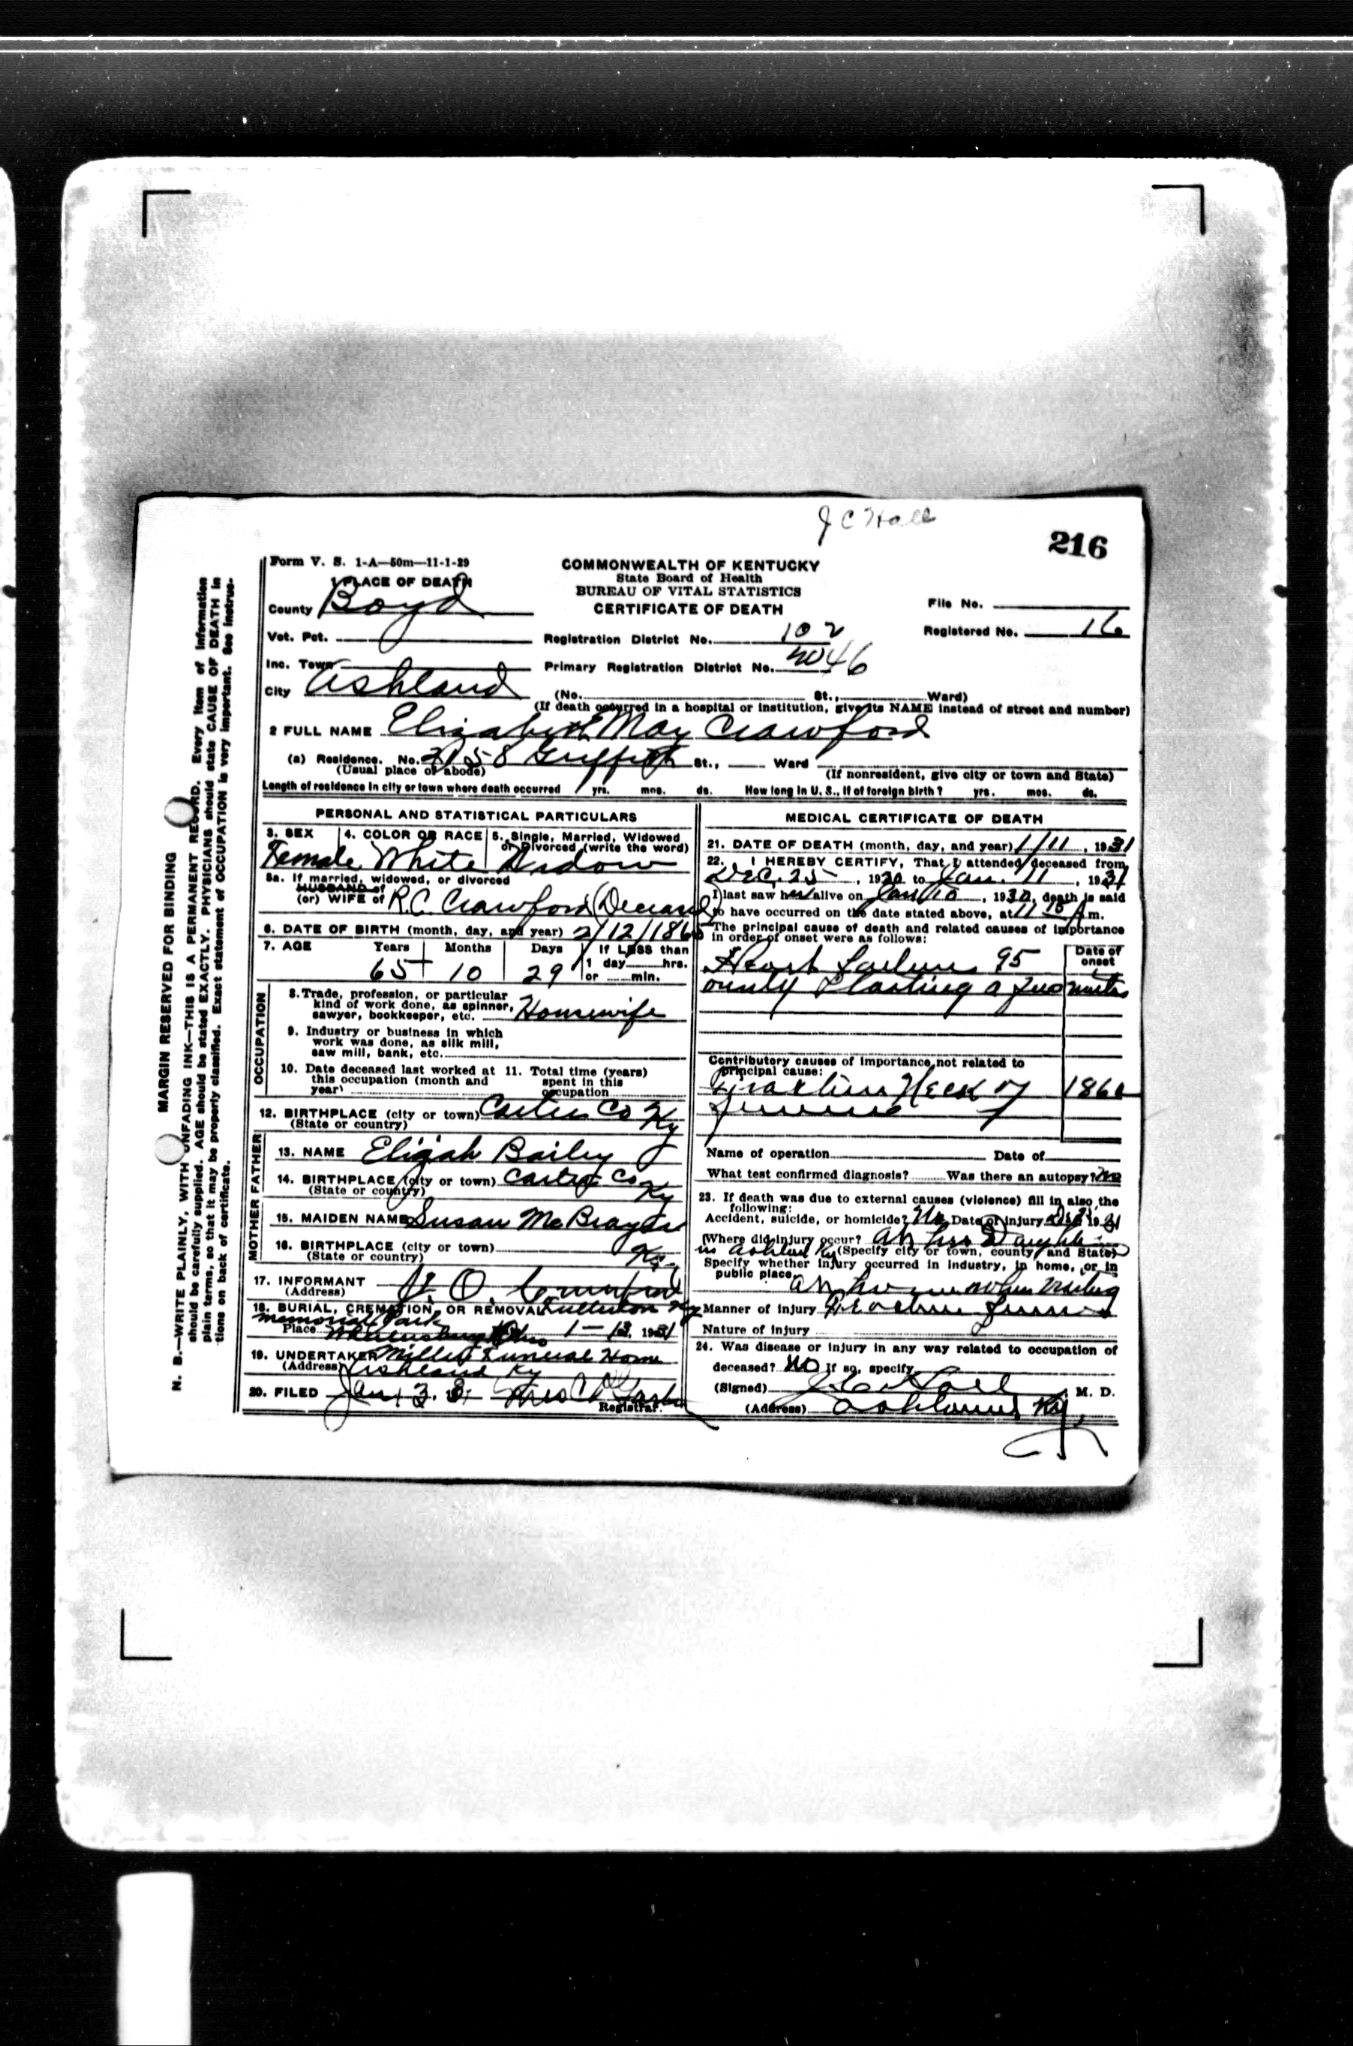 J C Hall
216
Form V. S. 1-A—50m—11-1-29
1 PLACE OF DEATH
COMMONWEALTH OF KENTUCKY
State Board of Health
BUREAU OF VITAL STATISTICS
CERTIFICATE OF DEATH
County Boyd
File No.
Vot. Pct.
Registration District No. 102
Registered No. 16
Inc. Town
Primary Registration District No. 2046
City Ashland
(No. St., Ward)
(If death occurred in a hospital or institution, give its NAME instead of street and number)
2 FULL NAME Elizabeth May Crawford
(a) Residence. No. 2158 Griffith St., Ward
(Usual place of abode)
(If nonresident, give city or town and State)
Length of residence in city or town where death occurred yrs. mos. ds. How long in U. S., if of foreign birth? yrs. mos. ds.
PERSONAL AND STATISTICAL PARTICULARS
3. SEX
4. COLOR OR RACE
5. Single, Married, Widowed
or Divorced (write the word)
Female White Widow
5a. If married, widowed, or divorced
HUSBAND of
(or) WIFE of R.C. Crawford (Deceased)
6. DATE OF BIRTH (month, day, and year) 2/12/186
7. AGE Years Months Days If LESS than
1 day hrs.
or min.
65 10 29
OCCUPATION
8. Trade, profession, or particular
kind of work done, as spinner,
sawyer, bookkeeper, etc. Housewife
9. Industry or business in which
work was done, as silk mill,
saw mill, bank, etc.
10. Date deceased last worked at
this occupation (month and
year)
11. Total time (years)
spent in this
occupation
12. BIRTHPLACE (city or town) Carter Co
(State or country) Ky
FATHER
13. NAME Elijah Bailey
14. BIRTHPLACE (city or town) Carter Co
(State or country) Ky
MOTHER
15. MAIDEN NAME Susan McBrayer
16. BIRTHPLACE (city or town)
(State or country) Ky.
17. INFORMANT O. Crawford
(Address) Fullerton Ky
18. BURIAL, CREMATION, OR REMOVAL
Memorial Park
Place 1-13, 1931
19. UNDERTAKER Miller Funeral Home
(Address) Ashland Ky
20. FILED Jan, 3. 31
Registrar.
MEDICAL CERTIFICATE OF DEATH
21. DATE OF DEATH (month, day, and year) 1/11, 1931
22. I HEREBY CERTIFY, That I attended deceased from
Dec. 25, 1930 to Jan. 11, 1931
I last saw her alive on Jan 10, 1930, death is said
to have occurred on the date stated above, at 11 A m.
The principal cause of death and related causes of importance
in order of onset were as follows:
Date of
onset
Heart failure 95
only lasting a few minutes
Contributory causes of importance not related to
principal cause:
Fraxture Neck of
Date of
Name of operation
What test confirmed diagnosis? Was there an autopsy? No
23. If death was due to external causes (violence) fill in also the
following:
Accident, suicide, or homicide? No Date of injury
Where did injury occur? At her Daughter
in Ashland Ky (Specify city or town, county and State)
Specify whether injury occurred in industry, in home, or in
public place. home when visiting
Manner of injury
Nature of injury
24. Was disease or injury in any way related to occupation of
deceased? No If so, specify
(Signed) J.C. Hall, M. D.
(Address) Ashland Ky,
MARGIN RESERVED FOR BINDING
N. B.—WRITE PLAINLY, WITH UNFADING INK—THIS IS A PERMANENT RECORD. Every item of information
should be carefully supplied. AGE should be stated EXACTLY. PHYSICIANS should state CAUSE OF DEATH in
plain terms, so that it may be properly classified. Exact statement of OCCUPATION is very important. See instruc-
tions on back of certificate.